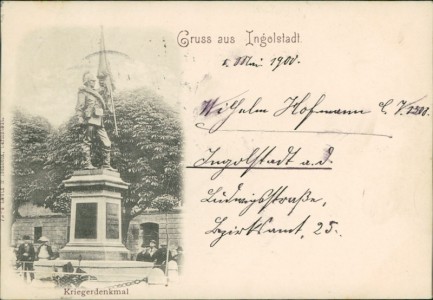 Gruss aus Ingolstadt.
1. Mai 1900.
Wilhelm Hofmann
Ingolstadt a. d.
Ludwigsstraße,
Bezirksamt, 25.
Kriegerdenkmal